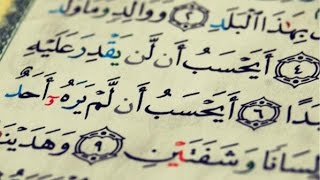 بِهَٰذَا ٱلْبَلَدِ ٢ وَوَالِدٍ وَمَا وَلَدَ
٤ أَيَحْسَبُ أَن لَّن يَقْدِرَ عَلَيْهِ
بَدًا ٦ أَيَحْسَبُ أَن لَّمْ يَرَهُۥٓ أَحَدٌ
لِسَانًا وَشَفَتَيْنِ ٩ وَهَدَيْنَ